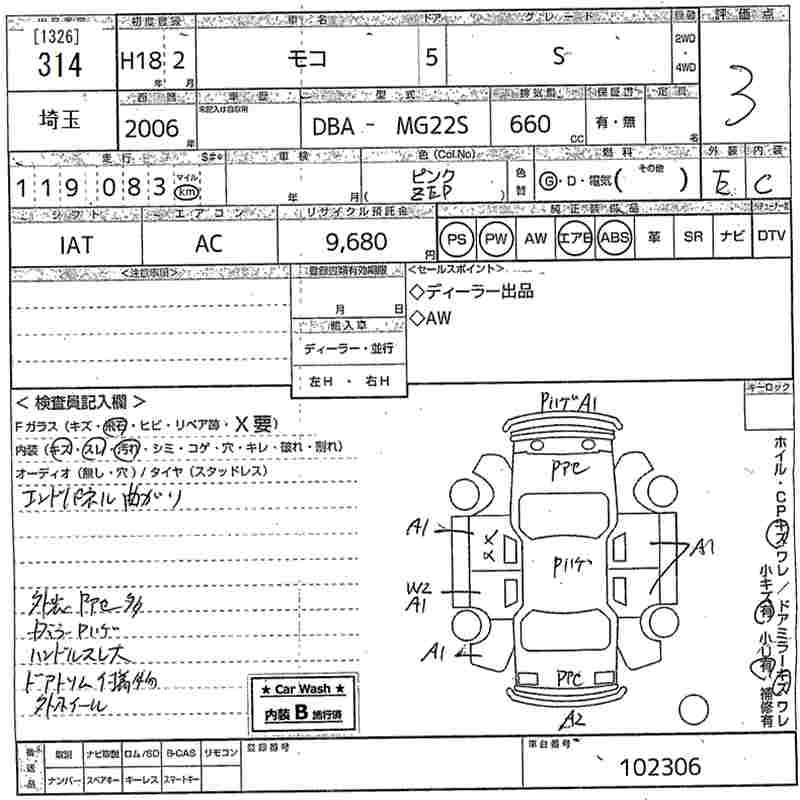 [1326]
314
初度登録 車名 ドア グレード 評価点
H18 2 モコ 5 S 2WD・4WD 3
年 月
埼玉
車歴 型式 排気量 保証書 定員
未記入は自家用
2006年 DBA - MG22S 660cc 有・無 名
走行 車検 色(Col,No) 燃料 外装 内装
119083 マイル km 年 月 ( ピンク ZEP ) 色替 G・D・電気( その他 ) E C
シフト エアコン リサイクル預託金 純正装備品
IAT AC 9,680円 PS PW AW エアB ABS 革 SR ナビ DTV
<注意事項> 登録書類有効期限 <セールスポイント>
月 日
◇ディーラー出品
◇AW
輸入車
ディーラー・並行
左H・右H
キーロック
<検査員記入欄>
Fガラス(キズ・飛石・ヒビ・リペア跡・X要)
内装(キズ・スレ・汚れ・シミ・コゲ・穴・キレ・破れ・割れ)
オーディオ(無し・穴)/タイヤ(スタッドレス)
エンドパネル曲がり
PハゲA1
PPC
A1
Pハゲ
A1
W2
A1
A1
PPC
A2
ホイル・CPキズワレ/ドアミラーキズワレ
小キズ有 小U有 補修有
ハンドルスレ大
★ Car Wash ★
内装 B 施行済
取説 ナビ取説 ロム/SD B-CAS リモコン
ナンバー スペアキー キーレス スマートキー
登録番号
車台番号
102306